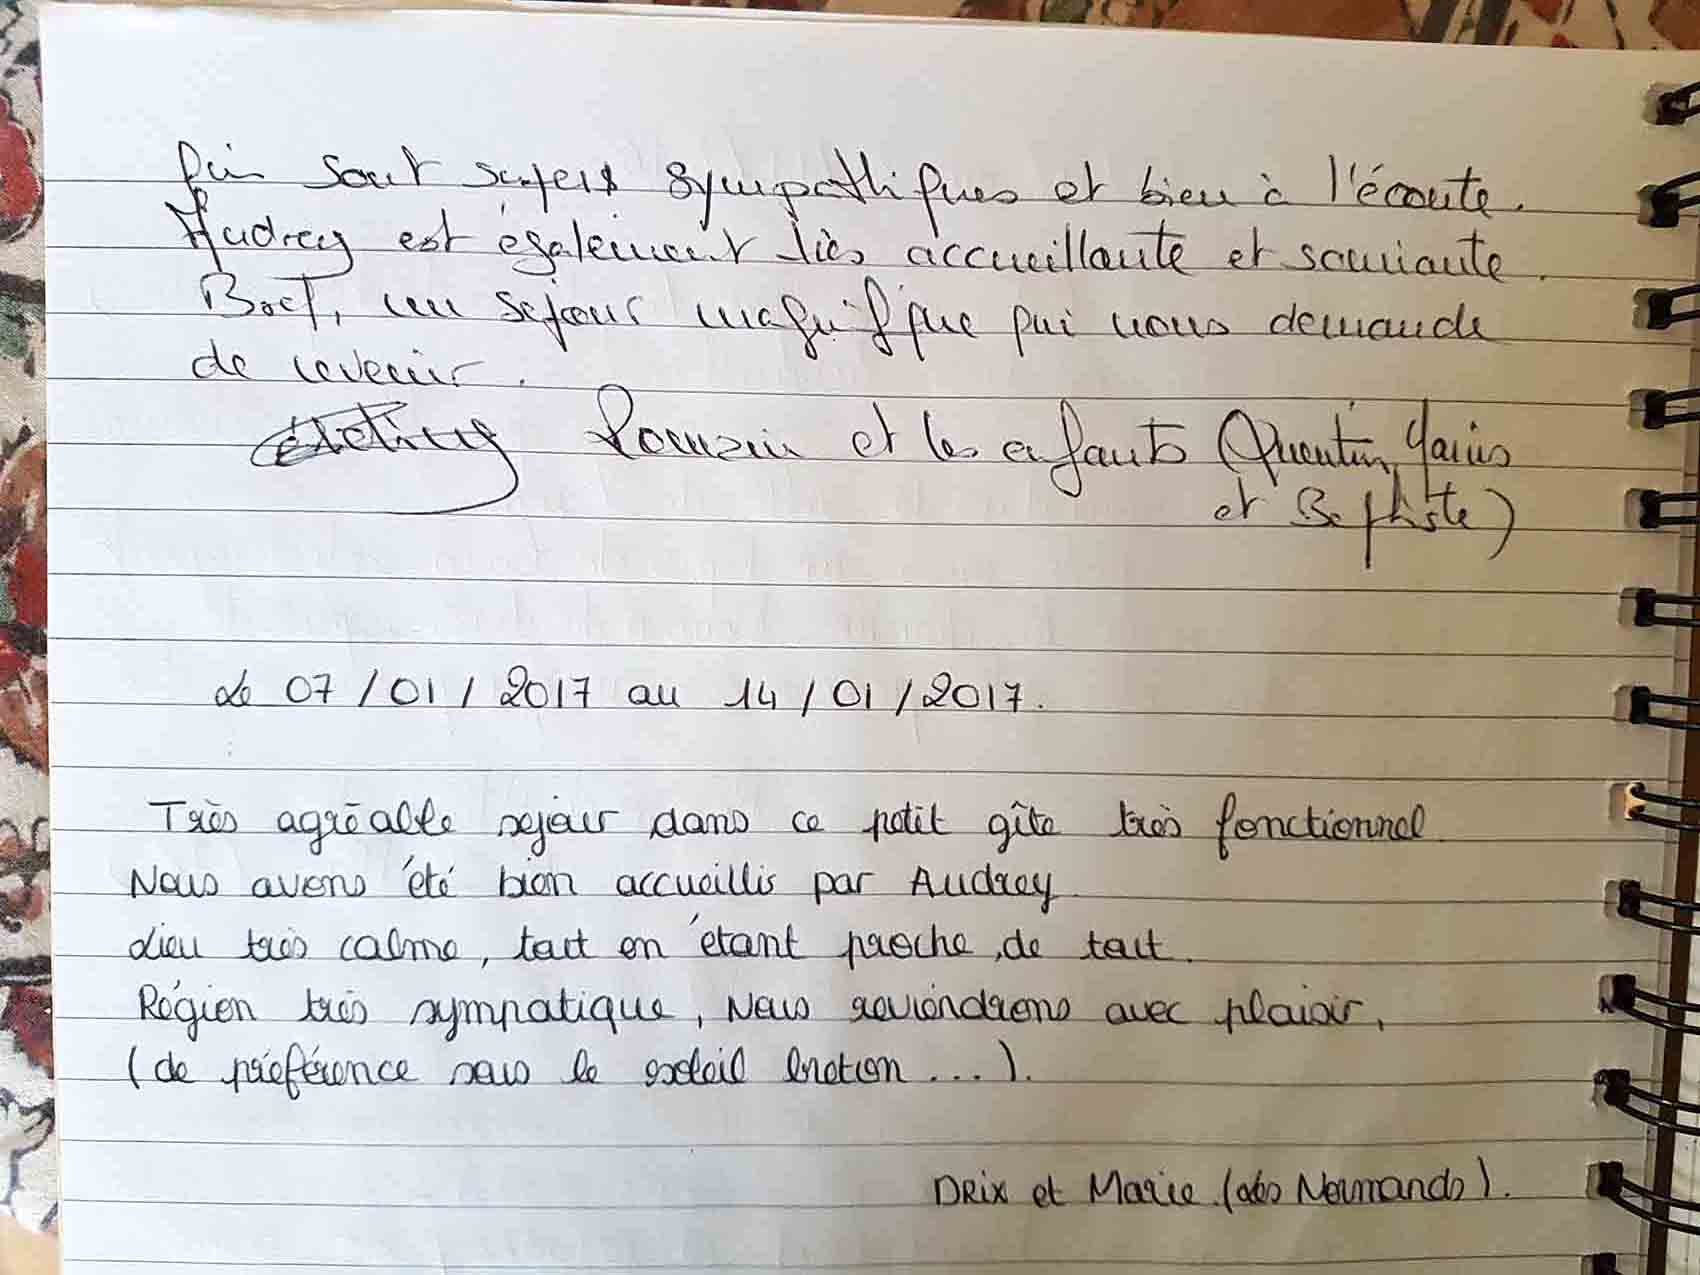 qui sont supers sympathiques et bien à l'écoute.
Audrey est également très accueillante et souriante.
Bref, un séjour magnifique qui nous demande
de revenir.
Romain et les enfants (Quentin,
et Baptiste)
Le 07/01/2017 au 14/01/2017.
Très agréable sejour dans ce petit gîte très fonctionnel.
Nous avons été bien accueillis par Audrey
Lieu très calme, tout en étant proche de tout.
Région très sympatique, Nous reviendrons avec plaisir,
(de préférence sous le soleil breton ...).
DRix et Marie. (des Normands).